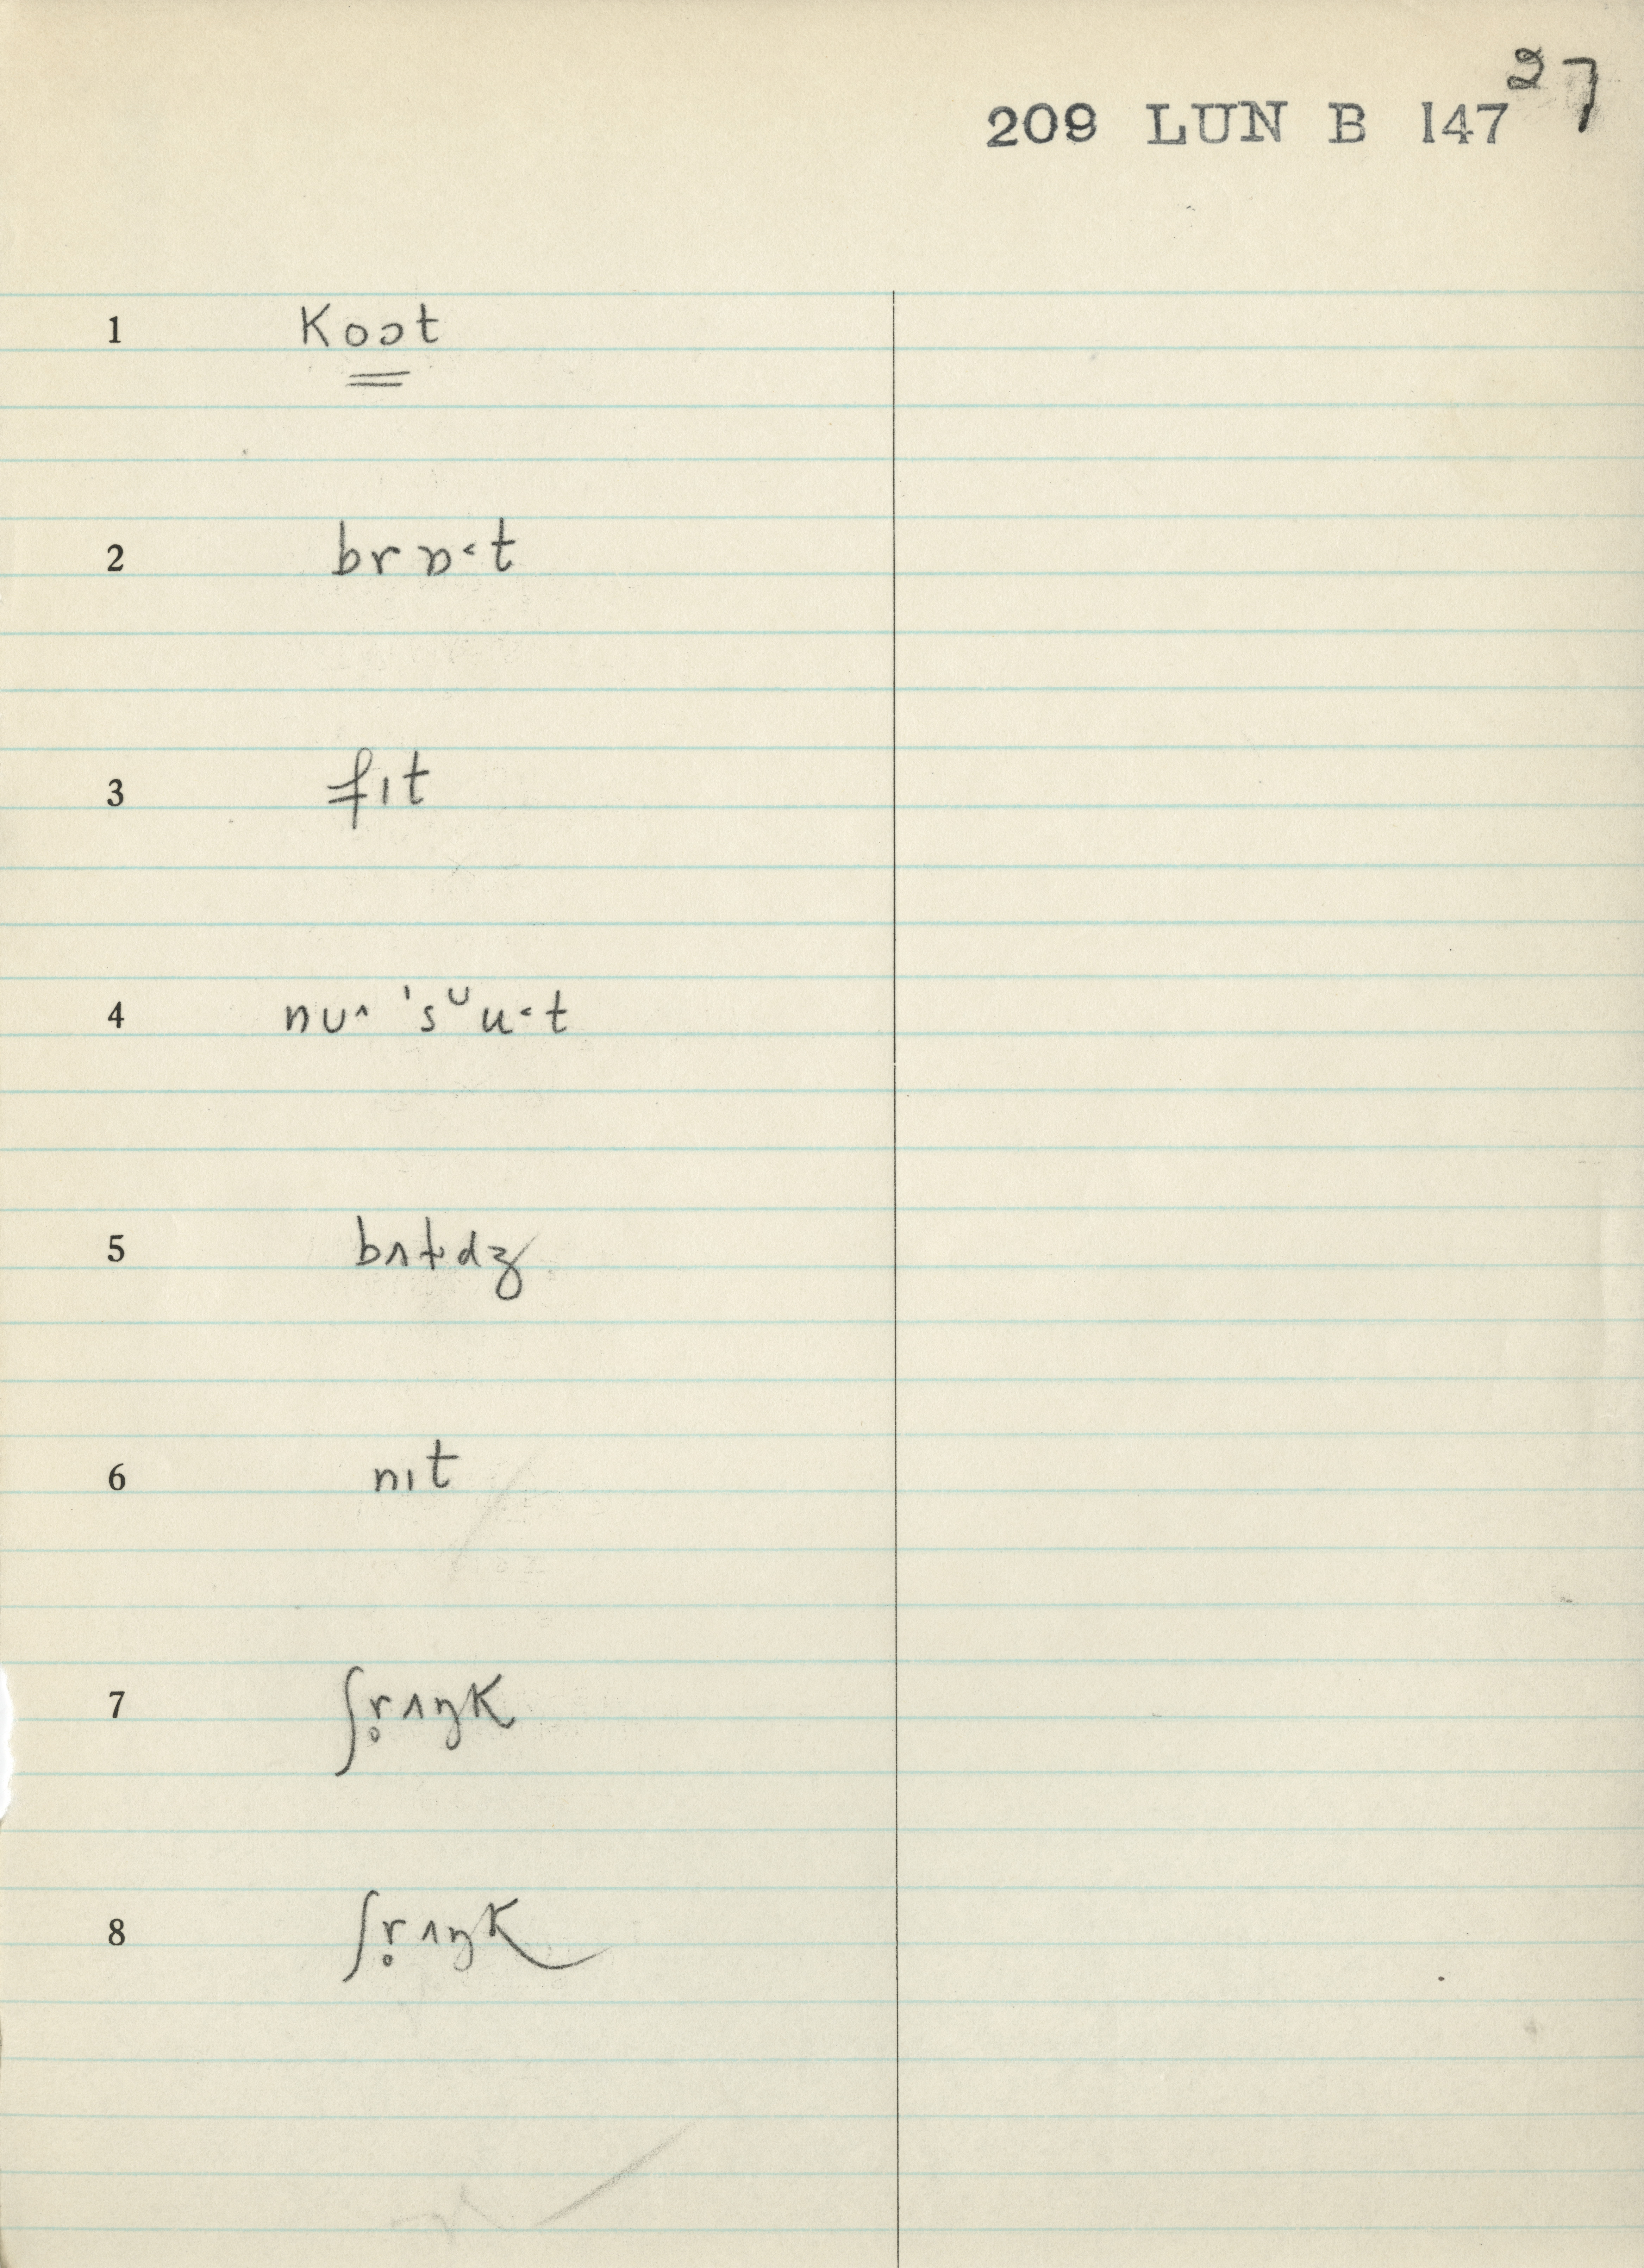 27
209 LUN B 147
1 koɔt
2 brɒ˂t
3 fɪt
4 nu˄ 'sᵘu˂t
5 bʌt̬dʒ
6 nɪt
7 ʃr̥ʌŋk
8 ʃr̥ʌŋk